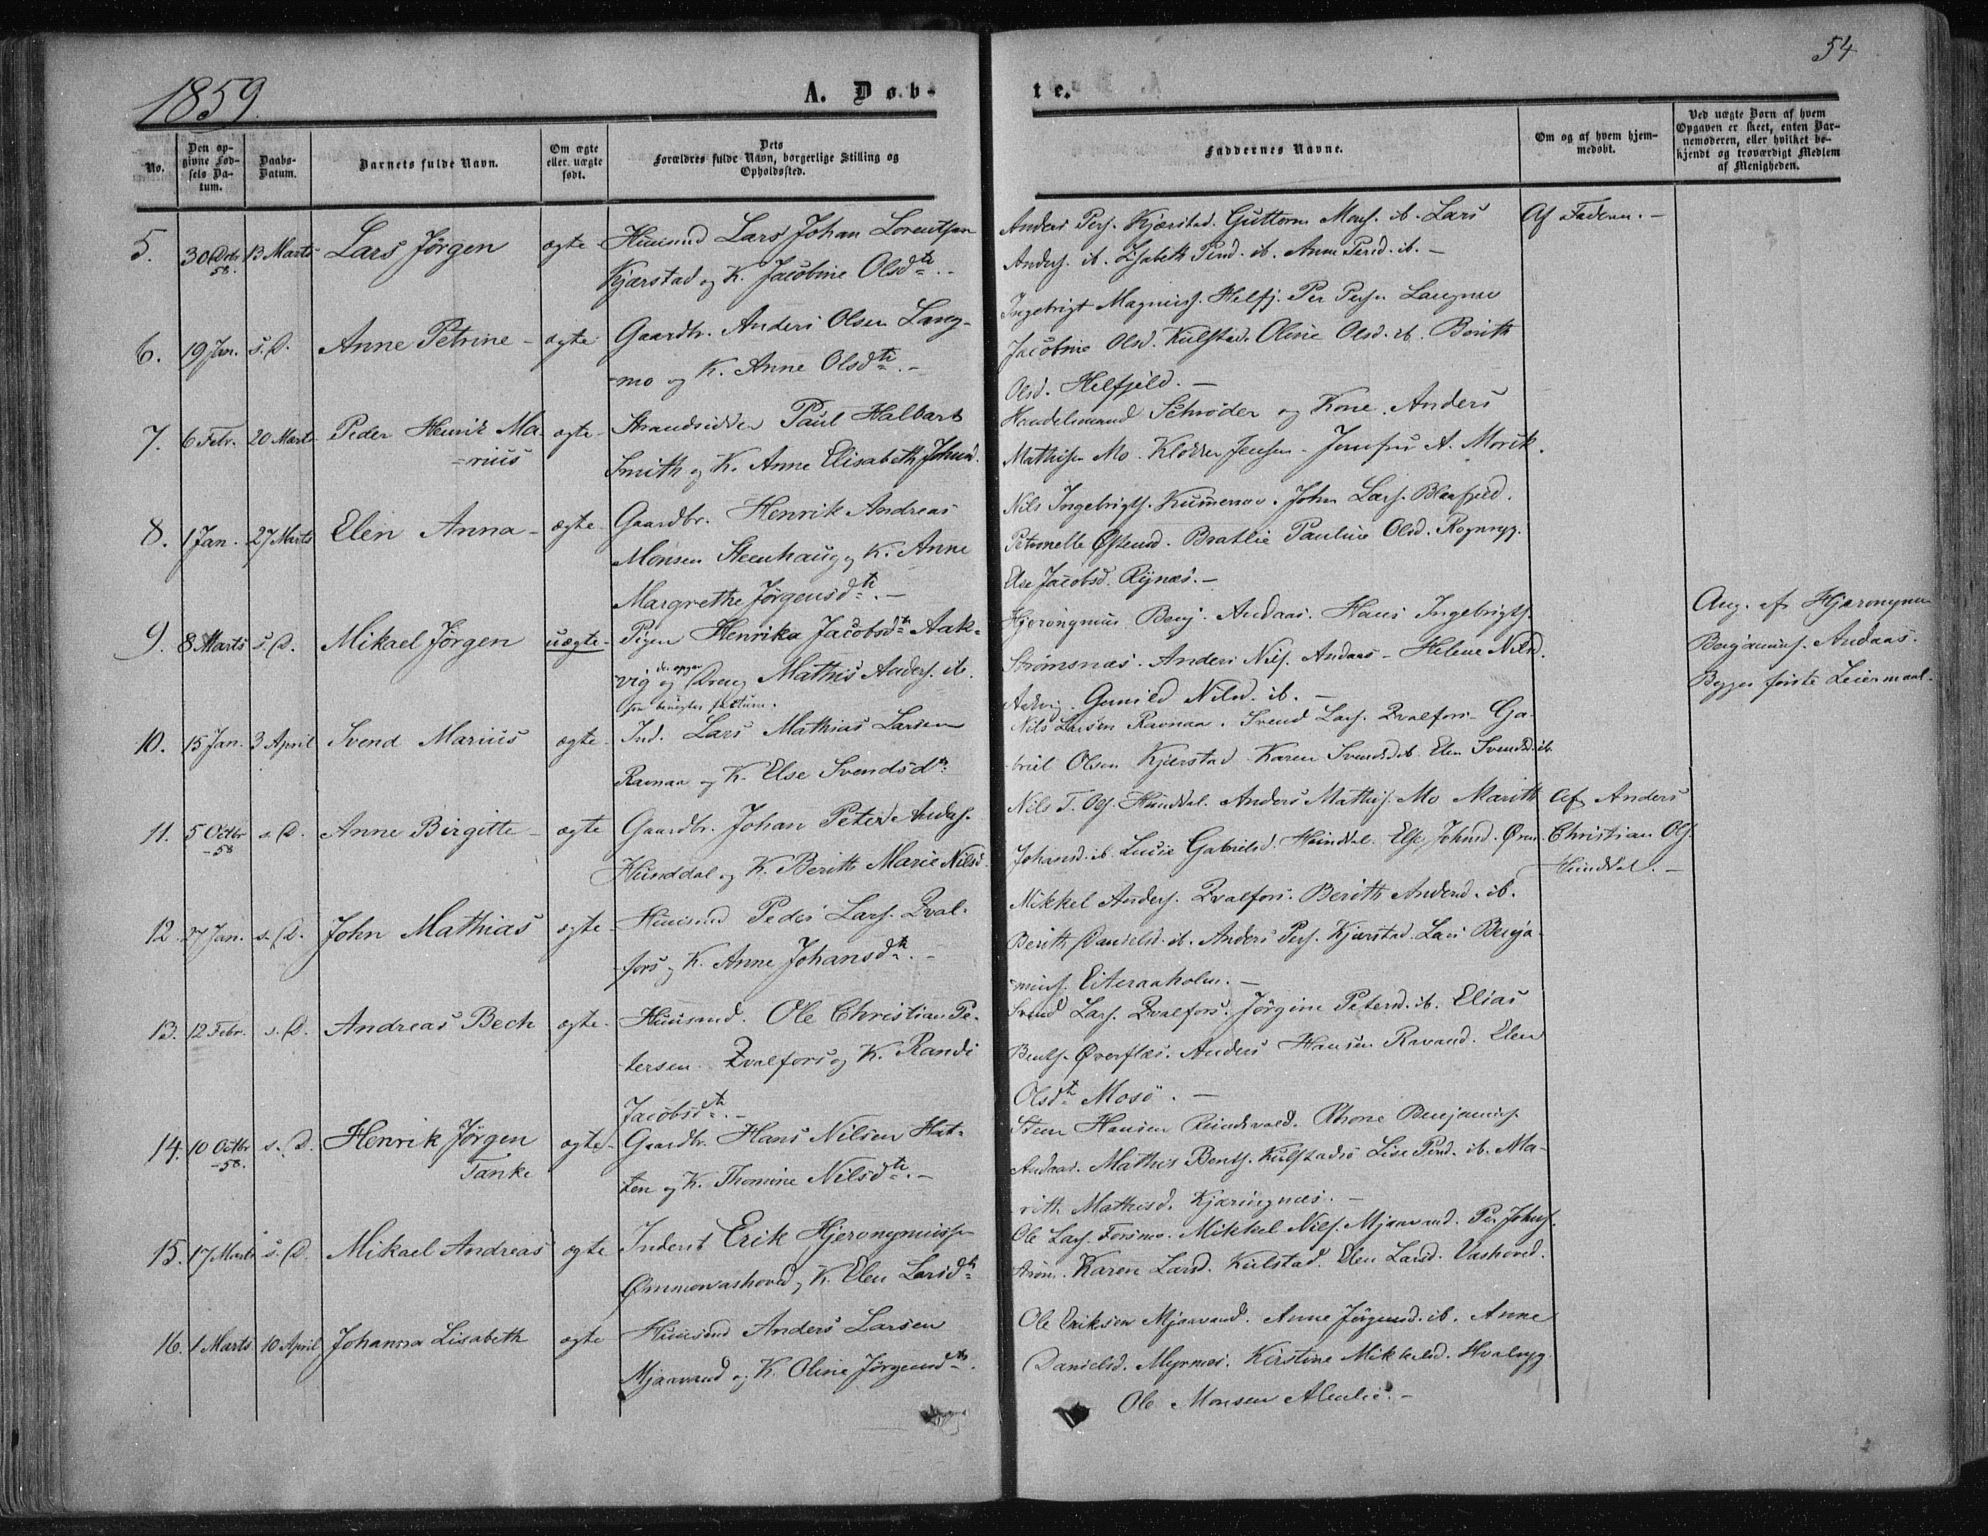 54
1859.
A. Døb-
te.
No.
Den op-
givne Fød-
sels Da-
tum.
Daabs-
Datum.
Barnets fulde Navn.
Om ægte
eller uægte
født.
Dets
Forældres fulde Navn, borgerlige Stilling og
Opholdssted.
Faddernes Navne.
Om og af hvem hjem-
medøbt.
Ved uægte Børn af hvem
Opgaven er skeet, enten Bar-
nemoderen, eller hvilket be-
kjendt og troværdigt Medlem
af Menigheden.
5.
30 Dcbr
58.
13 Marts
Lars Jørgen
ægte
Huusmd Lars Johan Lorentsen
Kjærstad og K. Jacobine Olsdtr.-
Anders Pers. Kjærstad. Guttorm Mons. ib. Lars
Anders. ib. Lisabeth Persd. ib. Anne Persd. ib. -
Af Faderen. -
6.
19 Jan.
s. D.
Anne Petrine -
ægte
Gaardbr. Anders Olsen Lang-
-mo og K. Anne Olsdtr. -
Ingebrigt Magnus. Helfj. Per Pers.
Jacobine Olsd. Kulstad. Oline Olsd. ib. Berith
Olsd. Helfjeld. -
7.
6 Febr.
20 Marts
Peder Henrik Ma-
=rius
ægte -
Strandsidder Paul Halbart
Smith og K. Anne Elisabeth Johnsd.
Handelsmand Schrøder og Kone. Anders
Mathisen Mo. Jensen - Jomfru A. Mørik.
8.
1 Jan.
27 Marts
Elen Anna -
ægte.
Gaardbr. Henrik Andreas
Monsen Steenhaug og K. Anne
Margrethe Jørgensdtr. -
Nils Ingebrigts. John Lars. Blaafjeld.
Petronelle Østensd. Bratlie Pauline Olsd. Rognryg.
Else Jacobsd. Rynes. -
9.
8 Marts
s. D.
Mikael Jørgen
uægte
Pigen Henrika Jacobsdtr Aak-
vig og Dreng Mathis Anders. ib.
Hjeronymus Benj. Andaas. Hans Ingebrigts.
Strømsnæs. Anders Nils. Andaas - Helene Nilsd.
Aakvig. Gunild Nilsd. ib. -
Ang. af Hjæronymus
Benjamins. Andaas.
Begges første Leiermaal.
10.
15 Jan.
3 April
Svend Marius
ægte.
Ind. Lars Mathias Larsen
Ravnaa og K. Else Svendsdtr.
Nils Larsen Ravnaa. Svend Lars. Kvalfors. Ga-
briel Olsen Kjærstad. Karen Svendsd. ib. Elen Svendsd. ib.
11.
5 Octbr
-58
s. D.
Anne Birgitte -
ægte
Gaardbr. Johan Peter Anders.
Hunddal og K. Berith Marie Nilsd.
Nils T. Ols. Hunddal. Anders Mathis. Mo Marith
Johansd. ib. Lucie Gabrielsd. Hunddal. Else Johnsd. Øren
Af Anders
Christian Ols.
Hunddal. -
12.
27 Jan.
s. D.
John Mathias
ægte -
Huusmd Peder Lars. Kval-
-fors og K. Anne Johansdtr. -
Mikkel Anders. Kvalfors. Berith Andersd. ib.
Berith Danielsd. ib. Anders Pers. Kjærstad. Lars Benja-
mins. Eiteraaholm. -
13.
12 Febr.
s. D.
Andreas Bech
ægte.
Huusmd. Ole Christian Pe-
tersen Kvalfors og K. Randi
Jacobsdtr. -
Svend Lars. Kvalfors. Jørgine Petersd. ib. Elias
Bents. Øverflæs. Anders Hansen Ravand. Elen
Olsdtr Mosø. -
14.
10 Octbr
-58.
s. D.
Henrik Jørgen
Tanke
ægte.
Gaardbr. Hans Nilsen Hat-
ten og K. Thomine Nilsdtr. -
Steen Hansen Benjamins.
Andaas. Mathis Bents. Kulstadsø Lise Persd. ib. Ma-
rith Mathisd. Kjæringnæs. -
15.
17 Marts
s. D.
Mikael Andreas
ægte
Inderst Erik Hjeronymussen
og K. Elen Larsdtr
Ole Lars. Forsmo. Mikkel Nils. Mjaavand. Per Johns.
Strøm. Karen Larsd. Kulstad. Elen Larsd. Vashoved.
16.
1 Marts
10 April
Johanna Lisabeth
ægte
Huusmd Anders Larsen
Mjaavand og K. Oline Jørgensdtr.
Ole Eriksen Mjaavand. Anne Jørgensd. ib. Anne
Danielsd. Myrnæs. Kirstine Mikkelsd. Hvalryg.
Ole Monsen Almlie. -